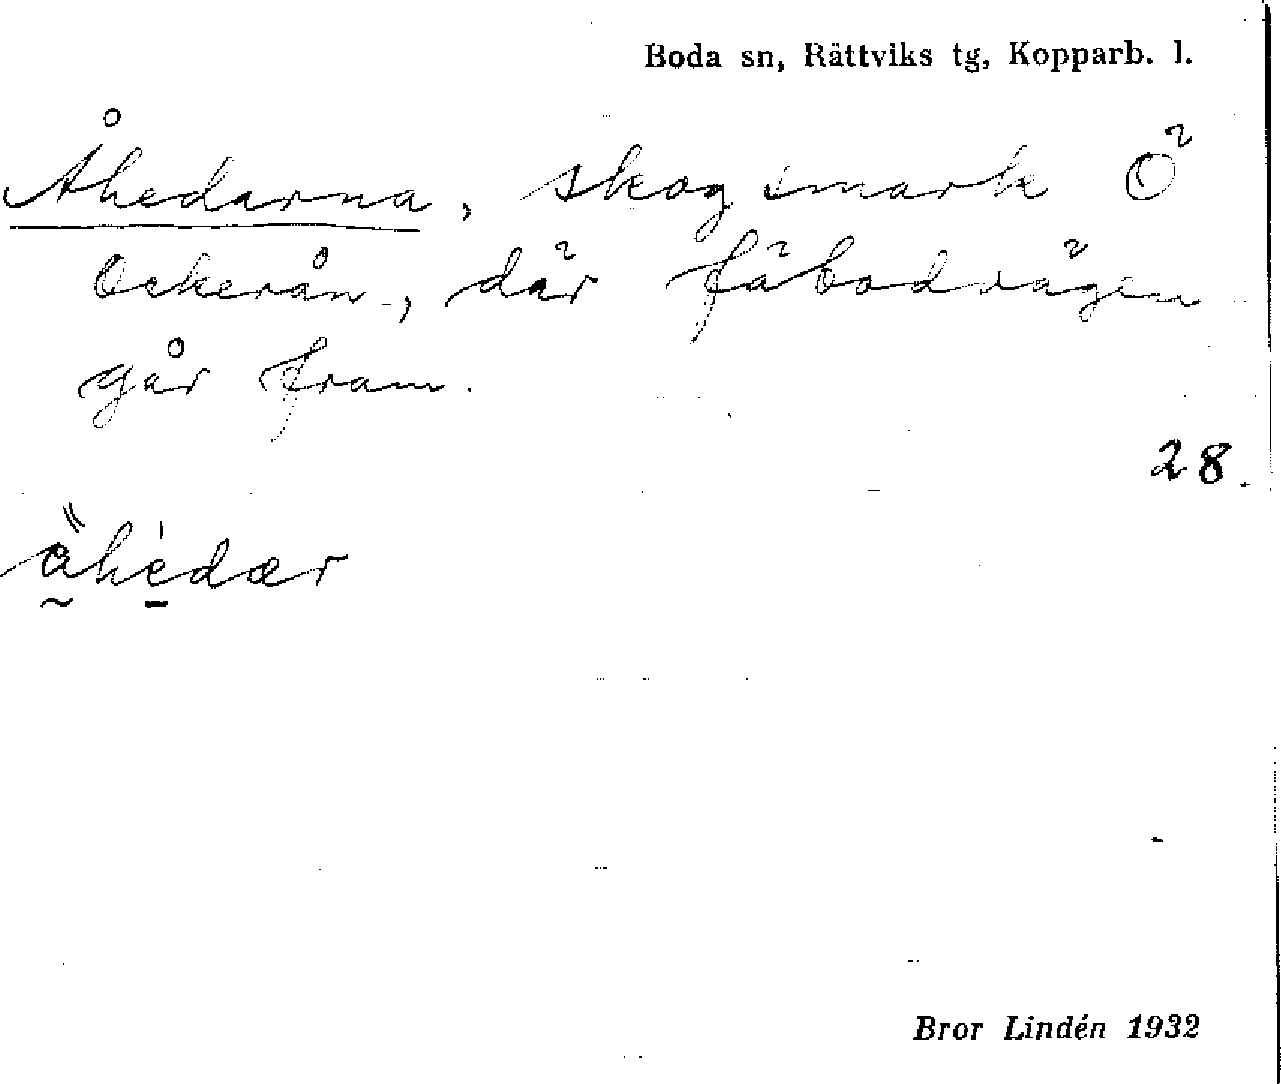 Boda sn, Rättviks tg, Kopparb. l.
Åhedarna, skogsmark Ö
Ockerån, där fäbodvägen
går fram.
28.
a̰̋hė̱dær
Bror Lindén 1932